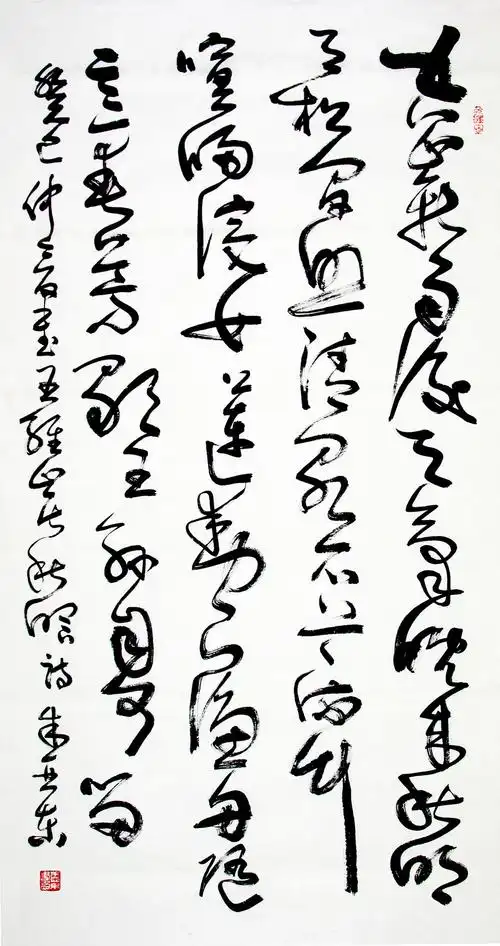 空山新雨後天氣晚來秋明
月松間照清泉石上流竹
喧歸浣女蓮動下漁舟隨
意春芳歇王孫自可留
癸巳仲春書王維山居秋暝詩